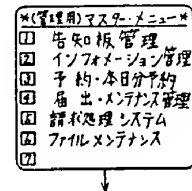 *(管理用)マスター・メニュー*
1 告知板管理
2 インフォメーション管理
3 予約・本日分予約
4 届出・メンテナンス管理
5 請求処理システム
6 ファイルメンテナンス
7